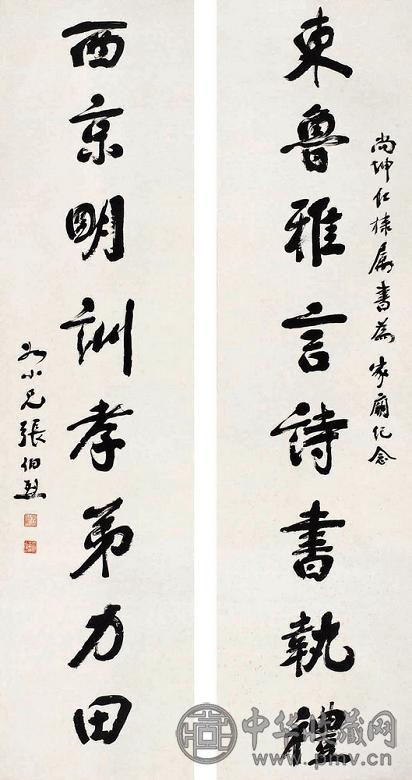 尚坤仁棣属書為家廟纪念
東魯雅言詩書執禮
西京明訓孝弟力田
如小兄張伯烈
中华收藏网
www.pmv.cn